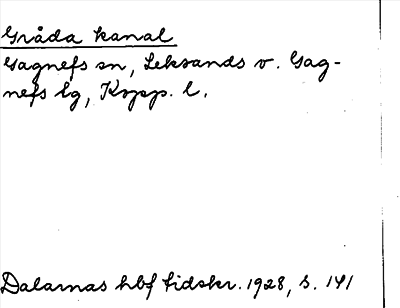 Gråda kanal
Gagnefs sn, Leksands o. Gag-
nefs lg, Kopp. l.
Dalarnas hbf tidskr. 1928, s. 141